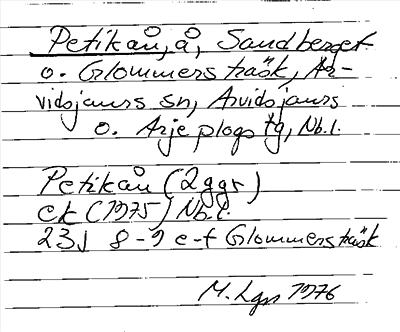 Petikån, å, Sandberget
o. Glommersträsk, Ar-
vidsjaurs sn, Arvidsjaurs
o. Arjeplogs tg, Nb.l.
Petikån (2 ggr)
ek (1975) Nb.l.
23J 8-9 e-f Glommersträsk
M. Lgn 1976